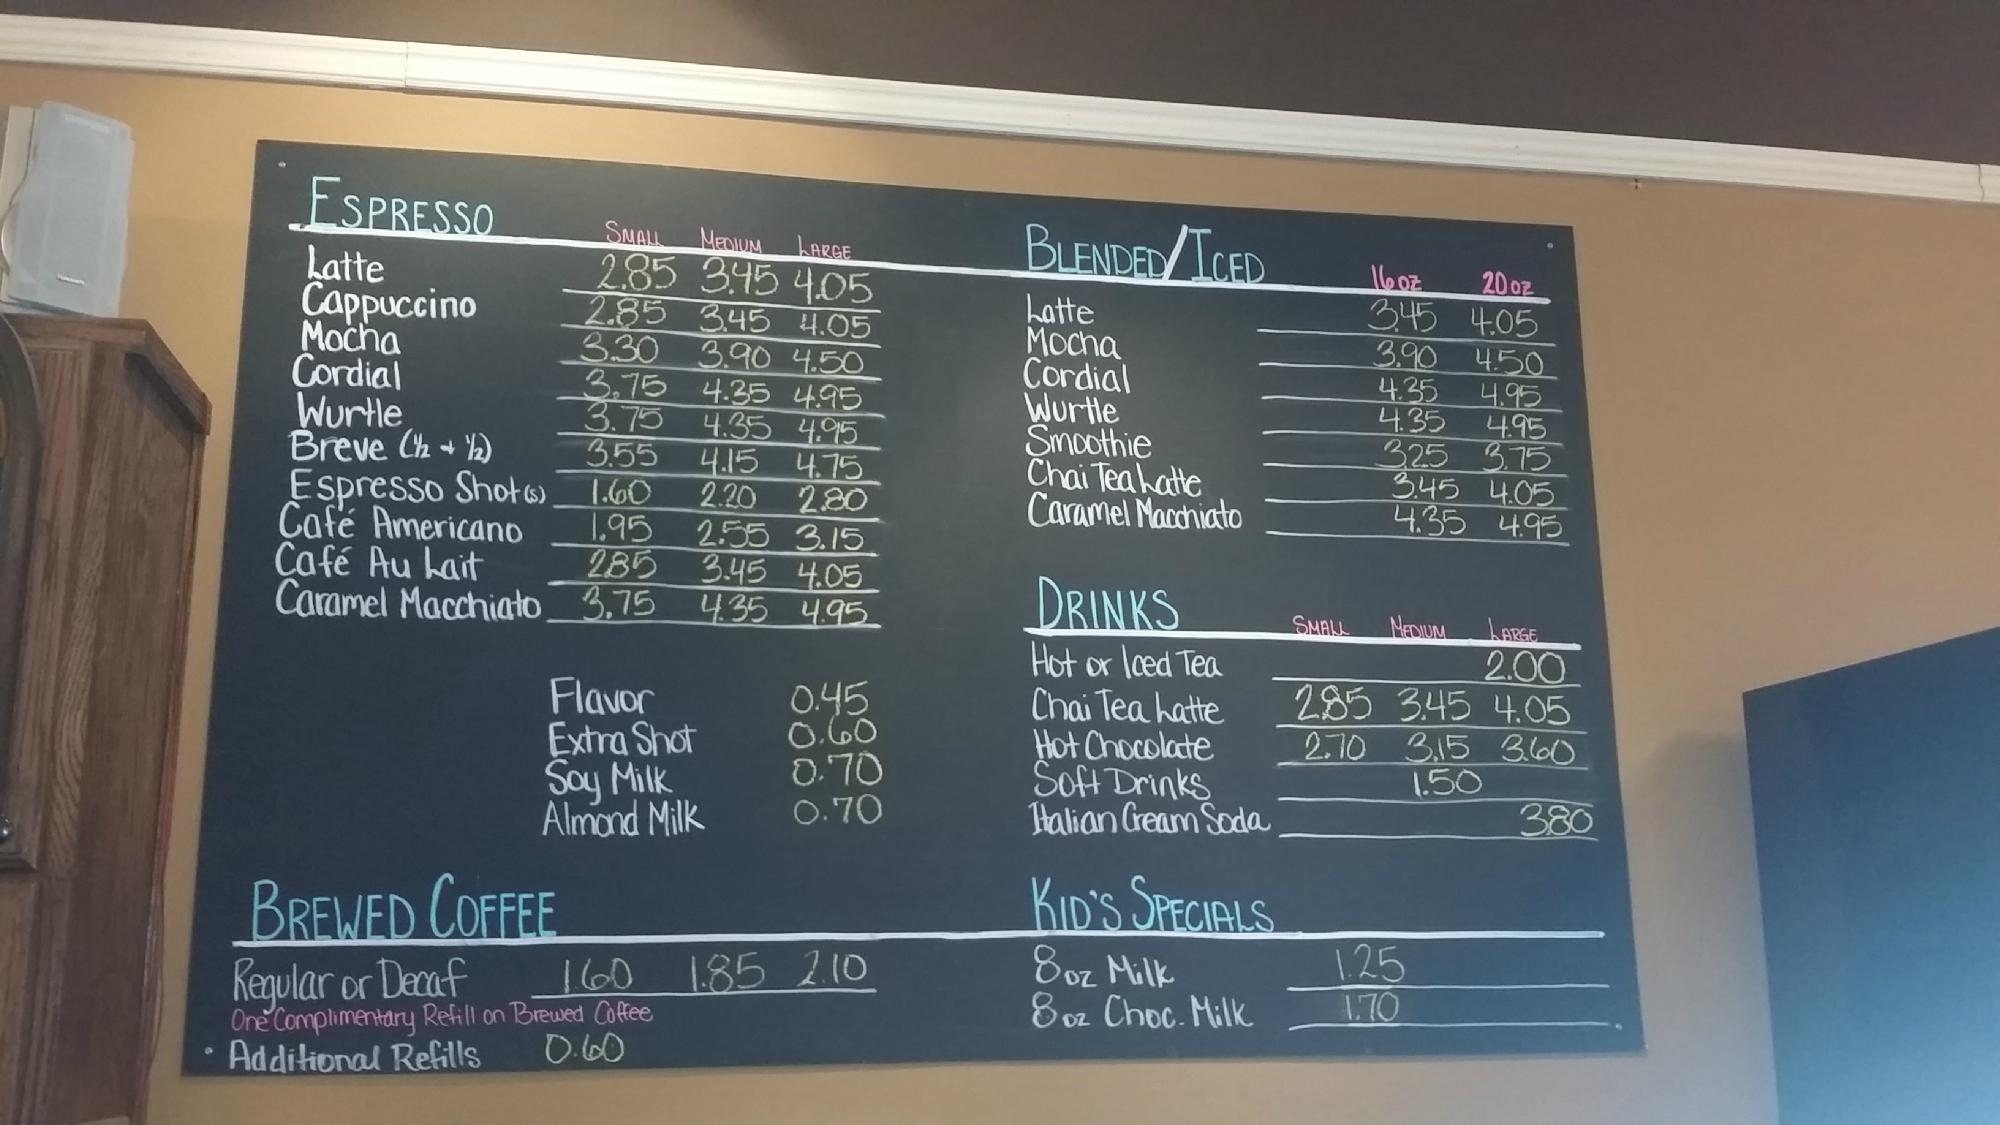 ESPRESSO SMALL MEDIUM LARGE
Latte 2.85 3.45 4.05
Cappuccino 2.85 3.45 4.05
Mocha 3.30 3.90 4.50
Cordial 3.75 4.35 4.95
Wurtle 3.75 4.35 4.95
Breve (1/2 + 1/2) 3.55 4.15 4.75
Espresso Shot(s) 1.60 2.20 2.80
Café Americano 1.95 2.55 3.15
Café Au Lait 2.85 3.45 4.05
Caramel Macchiato 3.75 4.35 4.95
Flavor 0.45
Extra Shot 0.60
Soy Milk 0.70
Almond Milk 0.70
BREWED COFFEE
Regular or Decaf 1.60 1.85 2.10
One Complimentary Refill on Brewed Coffee
Additional Refills 0.60
BLENDED/ICED 16oz 20oz
Latte 3.45 4.05
Mocha 3.90 4.50
Cordial 4.35 4.95
Wurtle 4.35 4.95
Smoothie 3.25 3.75
Chai Tea Latte 3.45 4.05
Caramel Macchiato 4.35 4.95
DRINKS SMALL MEDIUM LARGE
Hot or Iced Tea 2.00
Chai Tea Latte 2.85 3.45 4.05
Hot Chocolate 2.70 3.15 3.60
Soft Drinks 1.50
Italian Cream Soda 3.80
KID'S SPECIALS
8oz Milk 1.25
8oz Choc. Milk 1.70